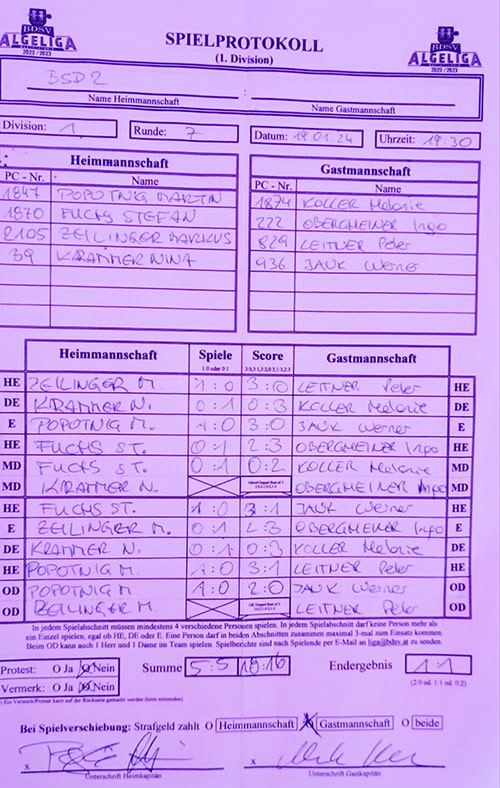 BDSV
ALGELIGA
2022 / 2023
SPIELPROTOKOLL
(1. Division)
BDSV
ALGELIGA
2022 / 2023
BSD 2 :
Name Heimmannschaft Name Gastmannschaft
Division: 1 Runde: 7 Datum: 19.01.24 Uhrzeit: 19.30
Heimmannschaft Gastmannschaft
PC - Nr. Name PC - Nr. Name
1847 POPOTNIG MARTIN 1874 KOLLER Melanie
1870 FUCHS STEFAN 222 OBERGMEINER Ingo
2105 ZEILINGER MARKUS 829 LEITNER Peter
39 KRAMMER NINA 936 JAUK Werner
Heimmannschaft Spiele Score Gastmannschaft
1:0 oder 0:1 3:0,3:1,3:2,0:3,1:3,2:3
HE ZEILINGER M. 1:0 3:0 LEITNER Peter HE
DE KRAMMER N. 0:1 0:3 KOLLER Melanie DE
E POPOTNIG M. 1:0 3:0 JAUK Werner E
HE FUCHS ST. 0:1 2:3 OBERGMEINER Ingo HE
MD FUCHS ST. 0:1 0:2 KOLLER Melanie MD
MD KRAMMER N. OBERGMEINER Ingo MD
HE FUCHS ST. 1:0 3:1 JAUK Werner HE
E ZEILINGER M. 0:1 2:3 OBERGMEINER Ingo E
DE KRAMMER N. 0:1 0:3 KOLLER Melanie DE
HE POPOTNIG M. 1:0 3:1 LEITNER Peter HE
OD POPOTNIG M. 1:0 2:0 JAUK Werner OD
OD ZEILINGER M. LEITNER Peter OD
In jedem Spielabschnitt müssen mindestens 4 verschiedene Personen spielen. In jedem Spielabschnitt darf keine Person mehr als
ein Einzel spielen, egal ob HE, DE oder E. Eine Person darf in beiden Abschnitten zusammen maximal 3-mal zum Einsatz kommen.
Beim OD kann auch 1 Herr und 1 Dame im Team spielen. Spielberichte sind nach Spielende per E-Mail an liga@bdsv.at zu senden.
Protest: O Ja O Nein Summe 5:5 18:16 Endergebnis 1:1
Vermerk: O Ja O Nein (2:0 od. 1:1 od. 0:2)
) Ein Vermerk/Protest kann auf der Rückseite gemacht werden (bitte ankreuzen)
Bei Spielverschiebung: Strafgeld zahlt O Heimmannschaft X Gastmannschaft O beide
x x
Unterschrift Heimkapitän Unterschrift Gastkapitän